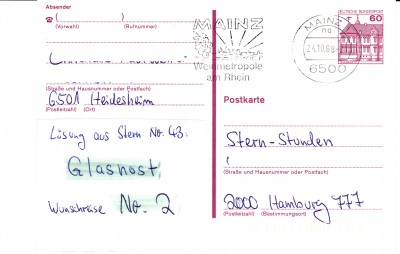 Absender
(Vorwahl) (Rufnummer)
(Straße und Hausnummer oder Postfach)
6501 Heidesheim
(Postleitzahl) (Ort)
Lösung aus Stern No. 43:
Glasnost
Wunschreise No. 2
MAINZ
Weinmetropole
am Rhein
MAINZ
6500
DEUTSCHE BUNDESPOST
60
Postkarte
Stern-Stunden
(Straße und Hausnummer oder Postfach)
2000 Hamburg 777
(Postleitzahl) (Bestimmungsort)